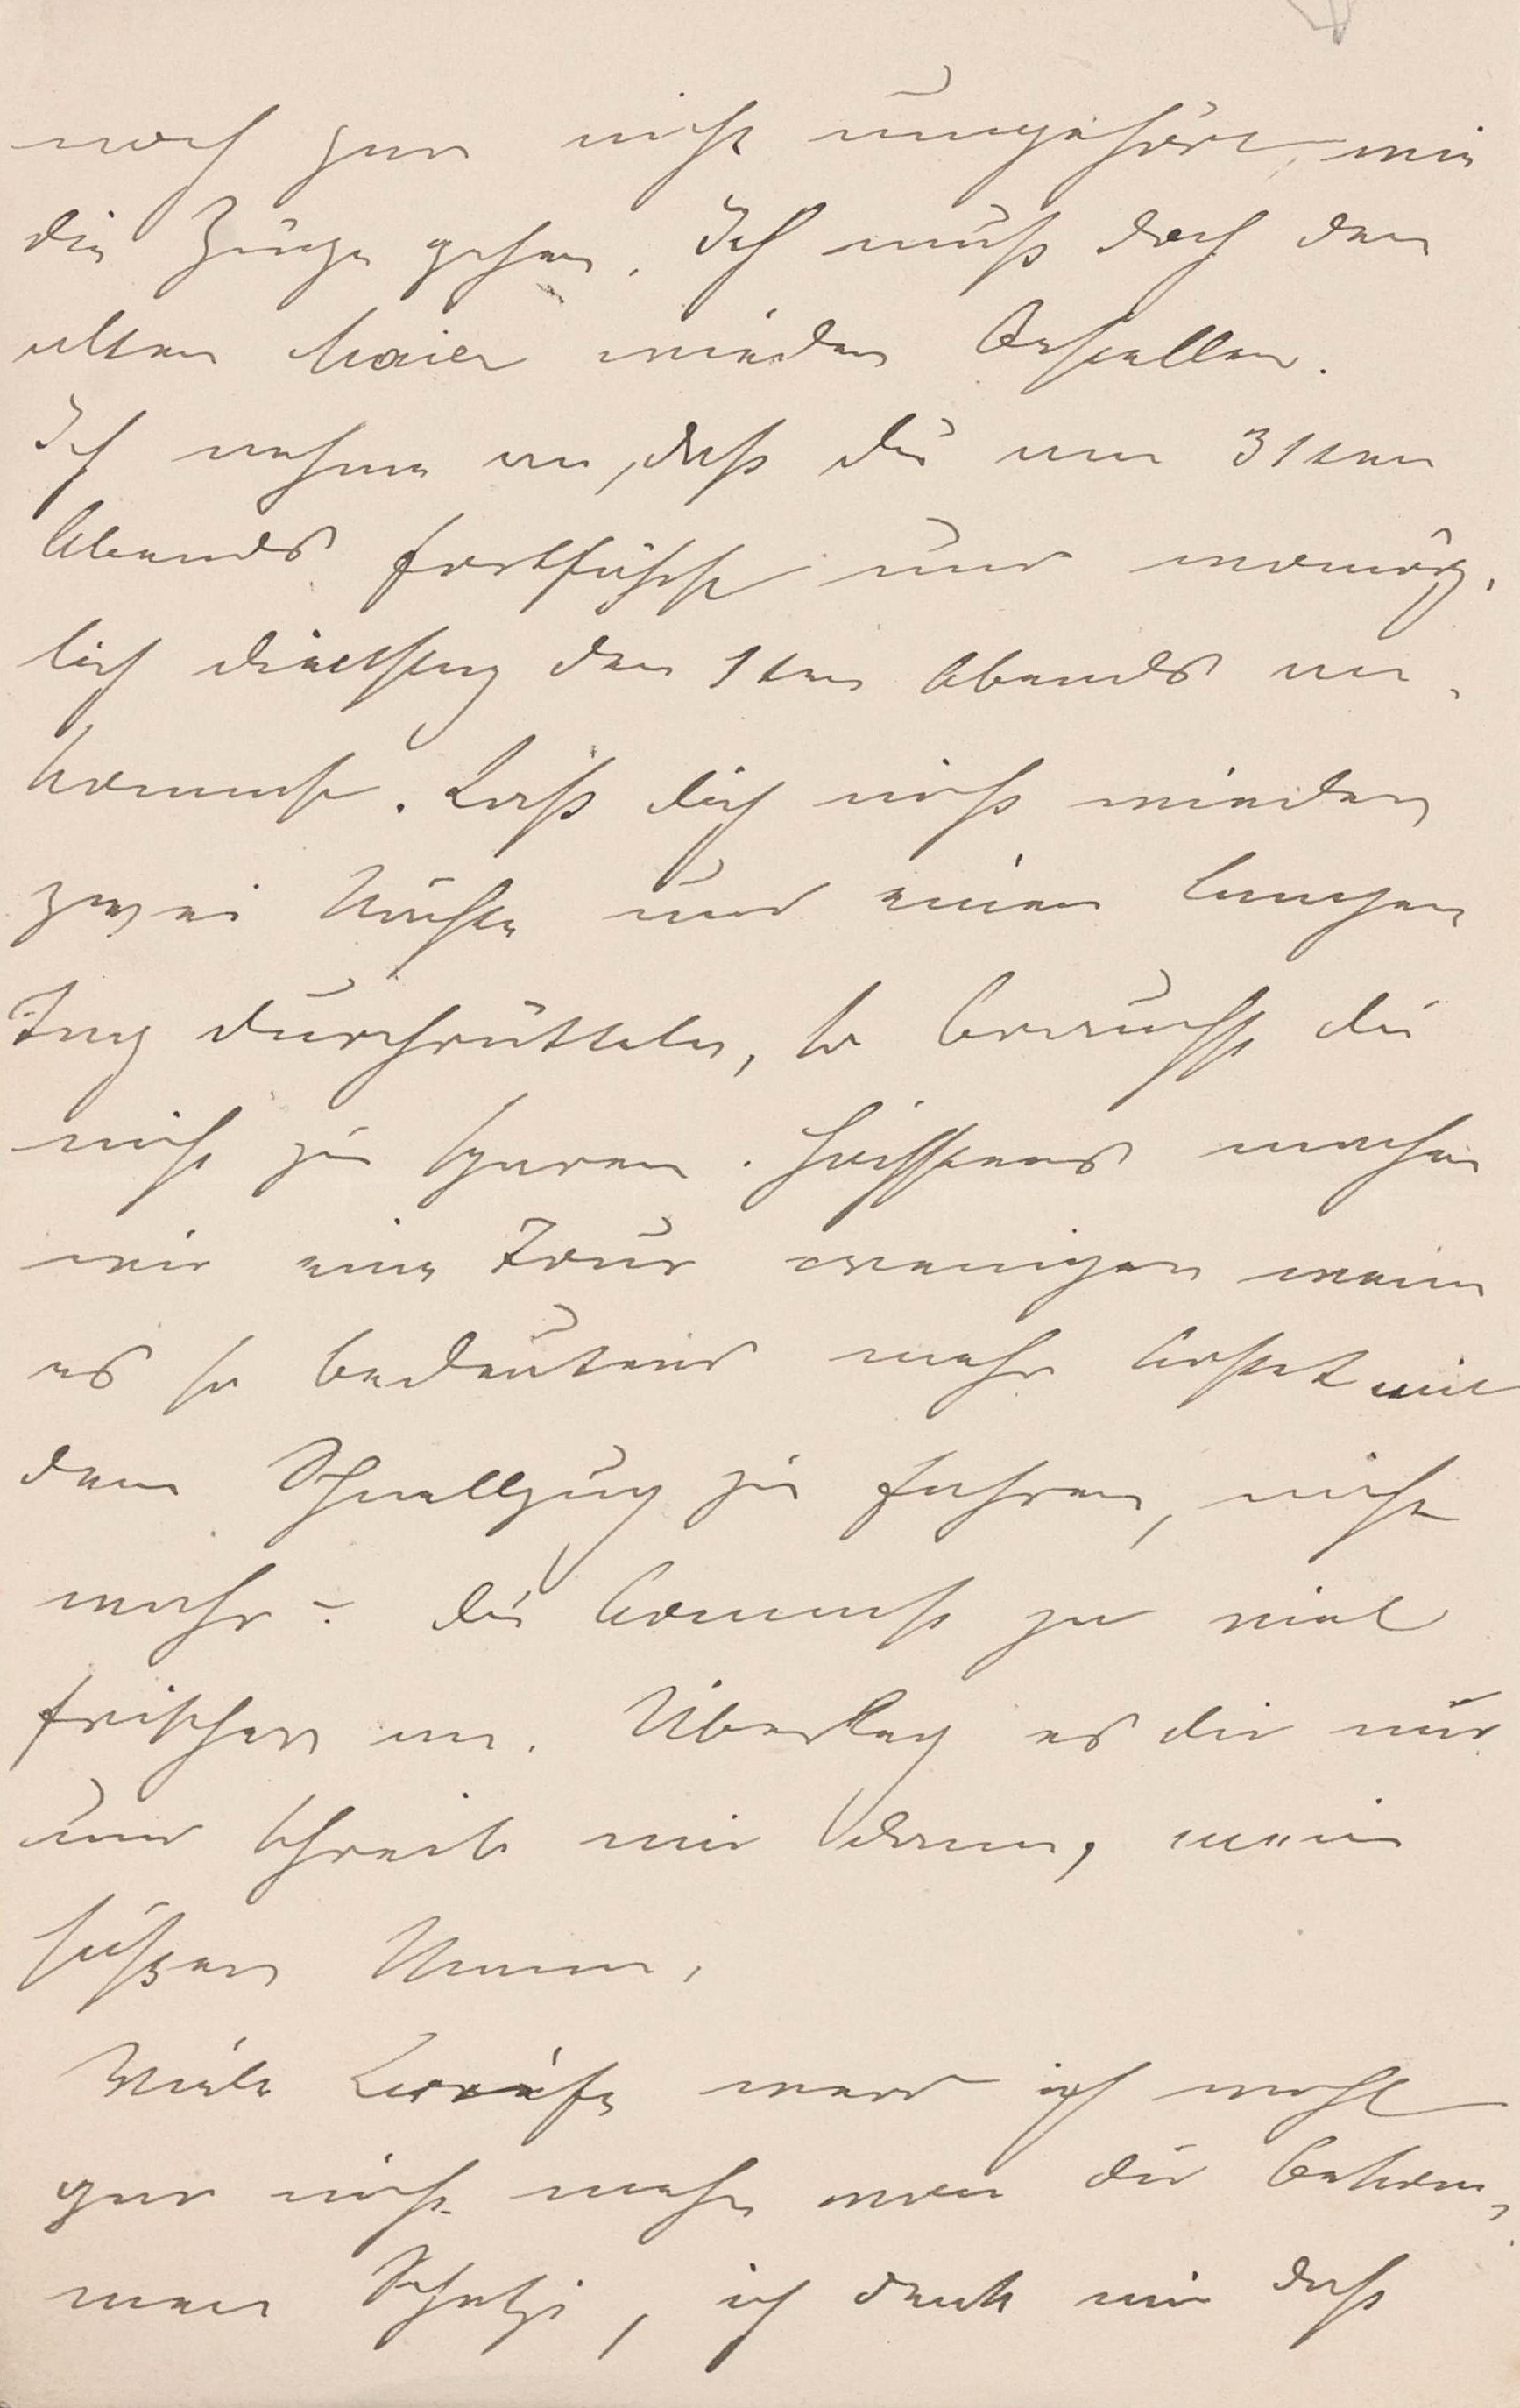 noch gar nicht umgehört, wie
die Züge gehen. Ich muß doch den
alten Maier wieder bestellen.
Ich nehme an, daß du am 31ten
Abends fortfährst und womög-
lich dienstag den 1ten Abends an-
kommst. Lass dich nicht wieder
zwei Nächte und einen langen
Tag durchrütteln, so brauchst du
nicht zu sparen. Höchstens machen
wir eine Tour weniger wenn
es so bedeutend mehr kostet mit
dem Schnellzug zu fahren, nicht
wahr? du kommst ja viel
frischer an. Überleg es dir nur
und schreib mir dann, mein
süßer Mann.
Viele Briefe werd ich wohl
gar nicht mehr von dir bekom-
men Schatzi, ich denk mir daß